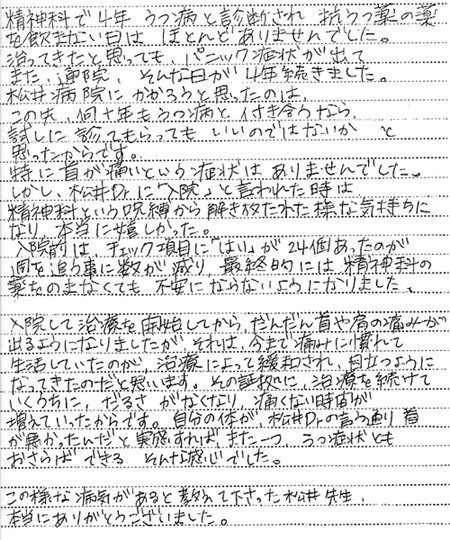 精神科で4年 うつ病と診断され 抗うつ薬の薬
を飲まない日は ほとんどありませんでした。
治ってきたと思っても、パニック症状が出て
また、通院、そんな日が4年続きました。
松井病院にかかろうと思ったのは、
この先、何十年もうつ病と付き合うなら、
試しに診てもらっても いいのではないか と
思ったからです。
特に首が痛いという症状はありませんでした。
しかし、松井Dr.に「入院」と言われた時は
精神科という呪縛から解き放たれた様な気持ちに
なり、本当に嬉しかった。
入院前は、チェック項目に「はい」が24個あったのが
週を追う事に数が減り、最終的には精神科の
薬をのまなくても 不安にならないようになりました。
入院して治療を開始してから、だんだん首や肩の痛みが
出るようになりましたが、それは、今まで痛みに慣れて
生活していたのが、治療によって緩和され、目立つように
なってきたのだと思います。その証拠に、治療を続けて
いくうちに、だるさ がなくなり、痛くない時間が
増えていったからです。自分の体が、松井Drの言う通り首
が悪かったんだと実感すれば、また一つ、うつ症状とも
おさらば できる そんな感じでした。
この様な病気があると教えて下さった松井先生、
本当にありがとうございました。